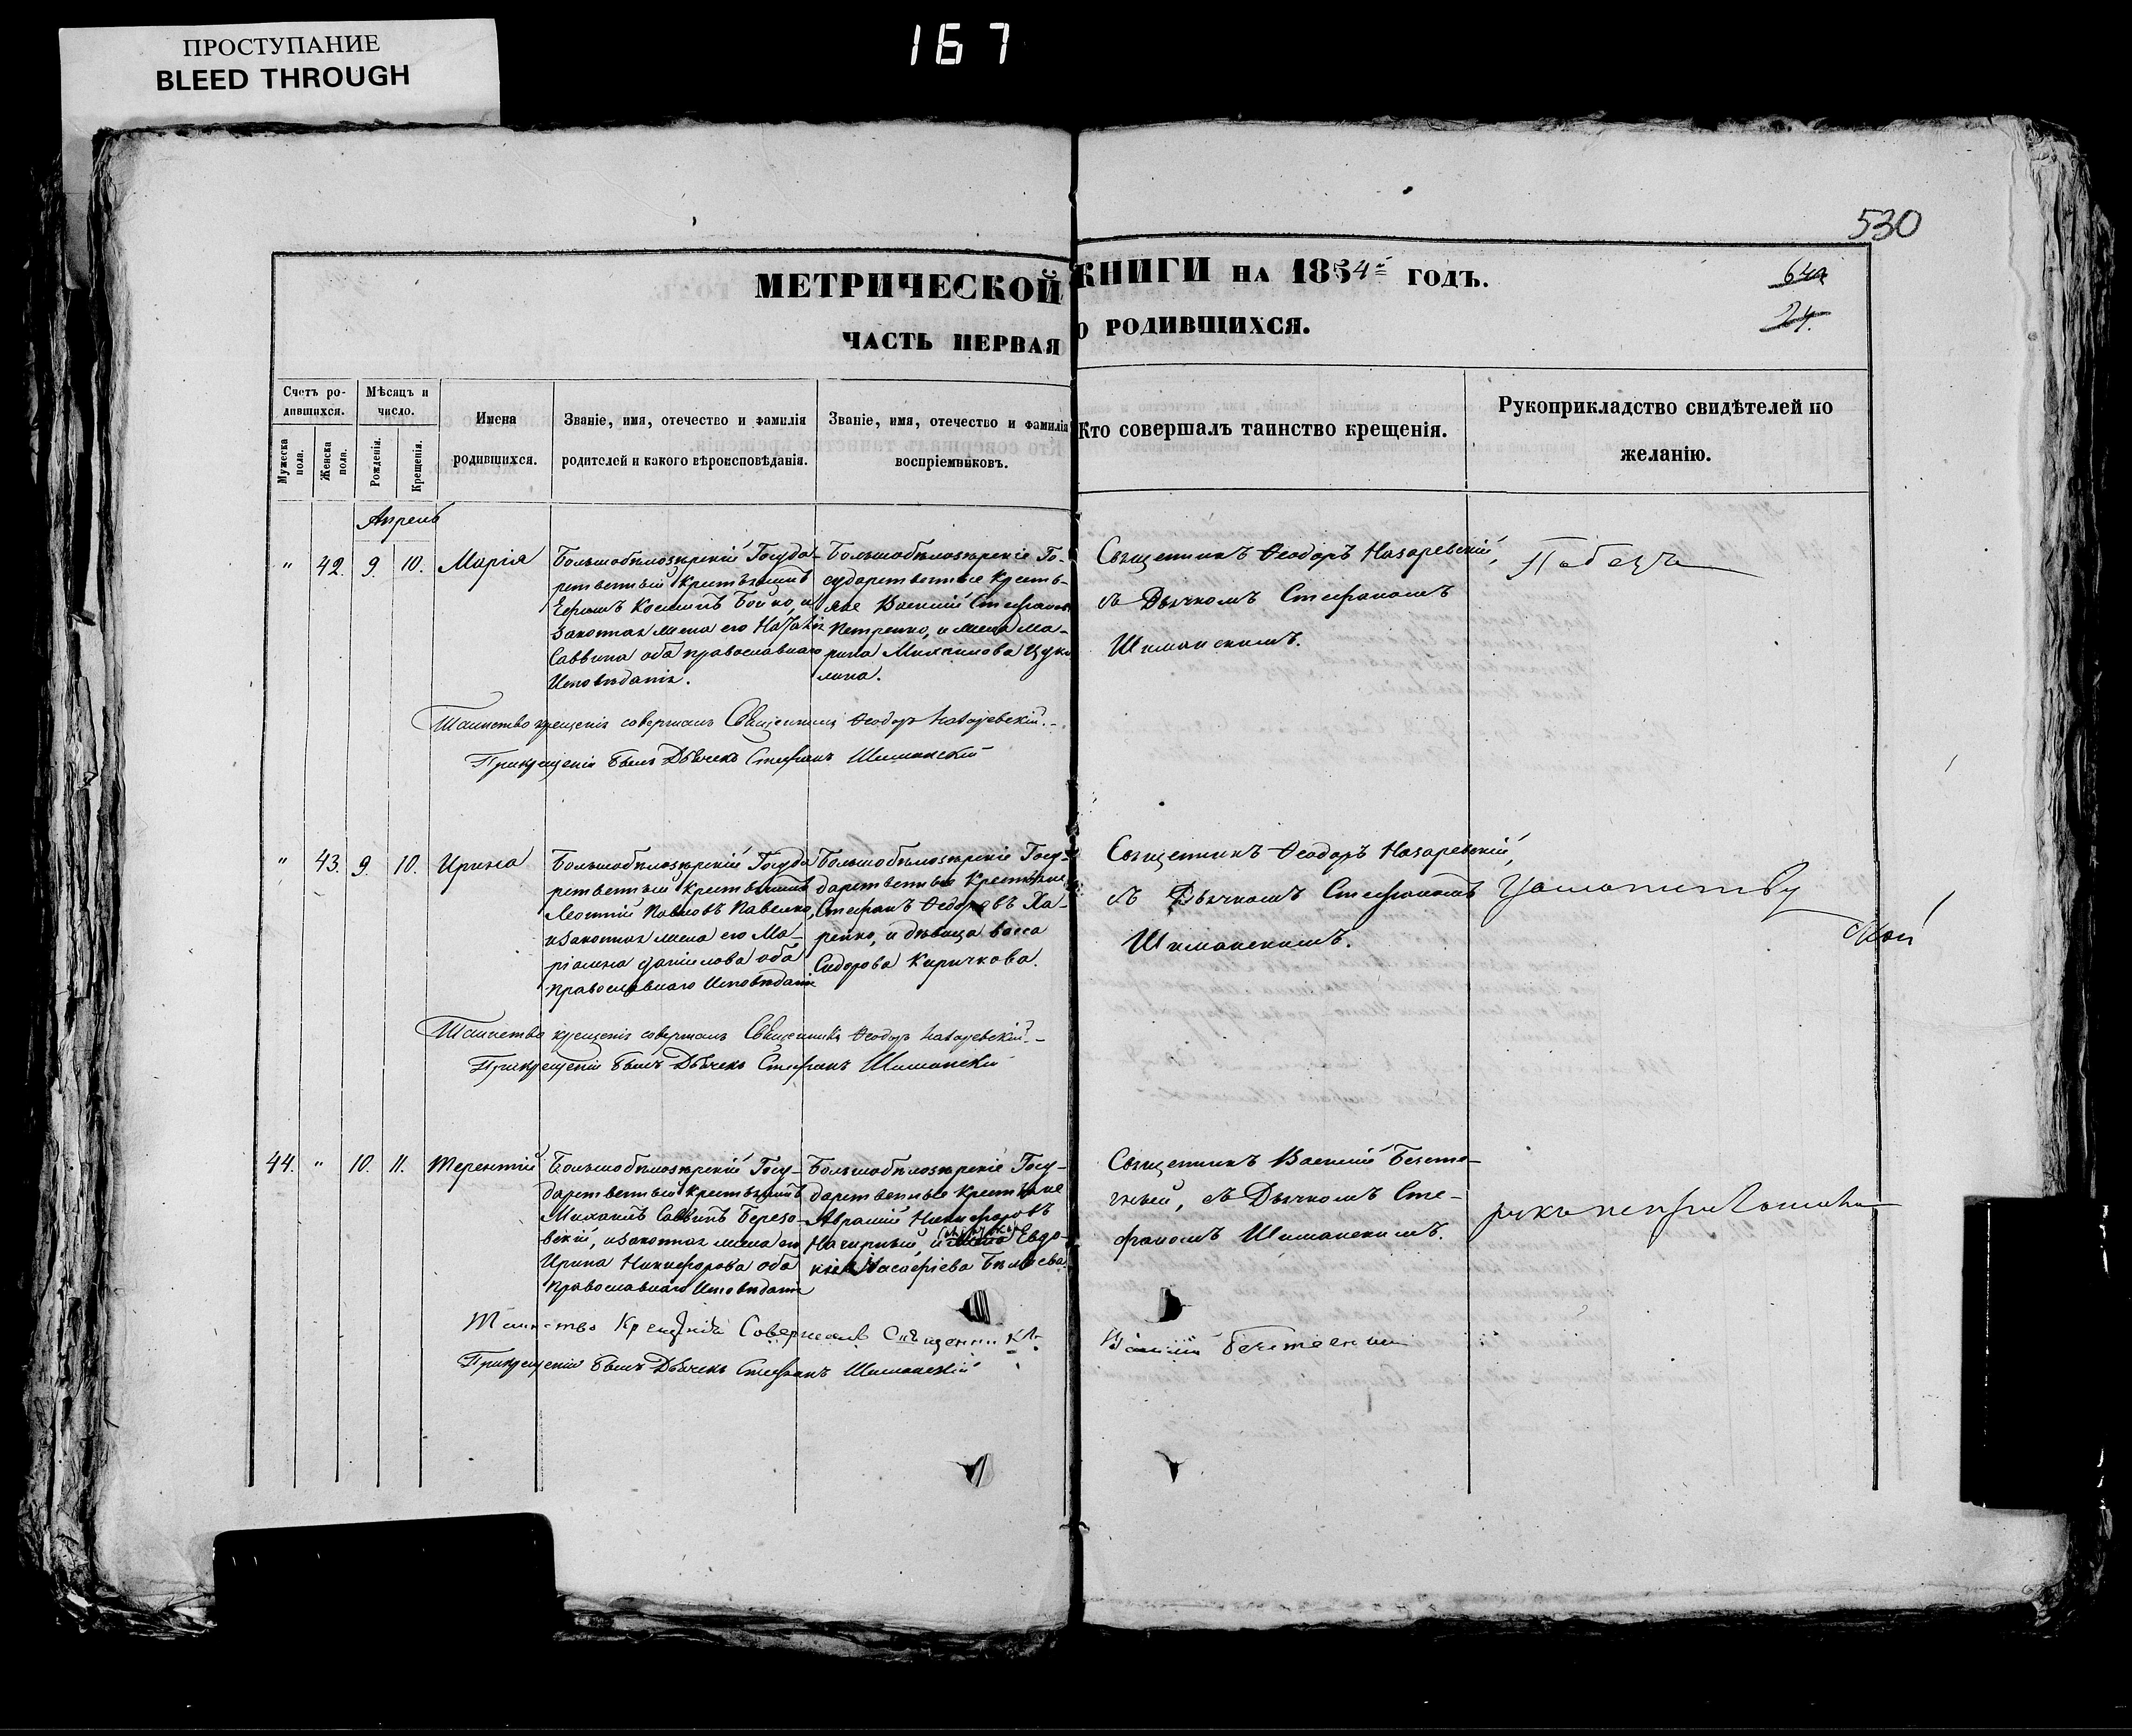 ПРОСТУПАНИЕ
BLEED THROUGH
167
530
МЕТРИЧЕСКОЙ КНИГИ НА 1854й ГОДЪ.
64а
24.
ЧАСТЬ ПЕРВАЯ О РОДИВШИХСЯ.
Счетъ родившихся.
Мужеска пола.
Женска пола.
Мѣсяцъ и число.
Рожденія.
Крещенія.
Имена родившихся.
Званіе, имя, отечество и фамилія
родителей и какого вѣроисповѣданія.
Званіе, имя, отечество и фамилія
воспріемниковъ.
Кто совершалъ таинство крещенія.
Рукоприкладство свидѣтелей по
желанію.
Апрель
" 42. 9. 10. Марія
Большобѣлозѣрскій Госуда-
рственный Крестьянинъ
Ефимъ Косминъ Бойко, и
законная жена его Наталія
Саввина оба православнаго
Исповѣданія.
Большобѣлозѣрскіе Го-
сударственные Кресть-
яне Василій Стефановъ
Петренко, и жена Ма-
рина Михайлова
лина.
Священникъ Ѳеодоръ Назаревскій,
съ Дьячкомъ Стефаномъ
Шиманскимъ.
Таинство крещенія совершалъ Священникъ Ѳеодоръ Назаревскій.
При крещеніи былъ Дьячекъ Стефанъ Шиманскій
" 43. 9. 10. Ирина
Большобѣлозѣрскій Госуда
рственный Крестьянинъ
Леонтій Павловъ Павленко,
и законная жена его Ма-
ріанна Даніилова оба
православнаго Исповѣданія
Большобѣлозѣрскіе Госу-
дарственные Крестьяне
Стефанъ Ѳедоровъ Ха-
ренко, и дѣвица Васса
Сидорова Киричкова.
Священникъ Ѳеодоръ Назаревскій,
съ Дьячкомъ Стефаномъ
Шиманскимъ.
Таинство крещенія совершалъ Священникъ Ѳеодоръ Назаревскій.
При крещеніи былъ Дьячекъ Стефанъ Шиманскій
44. " 10. 11. Терентій
Большобѣлозѣрскій Госу-
дарственный Крестьянинъ
Михаилъ Саввинъ Березо-
вскій, и законная жена его
Ирина Никифорова оба
Православнаго Исповѣданія
Большобѣлозѣрскіе Госу-
дарственные Крестьяне
Аврамій Никифоровъ
Нагирный, и Евдо-
кія
Священникъ Василій Безсмо-
гнъй, съ Дьячкомъ Сте-
фаномъ Шиманскимъ.
Таинство Крещенія Совершалъ Священникъ
Василій
При крещеніи былъ Дьячекъ Стефанъ Шиманскій